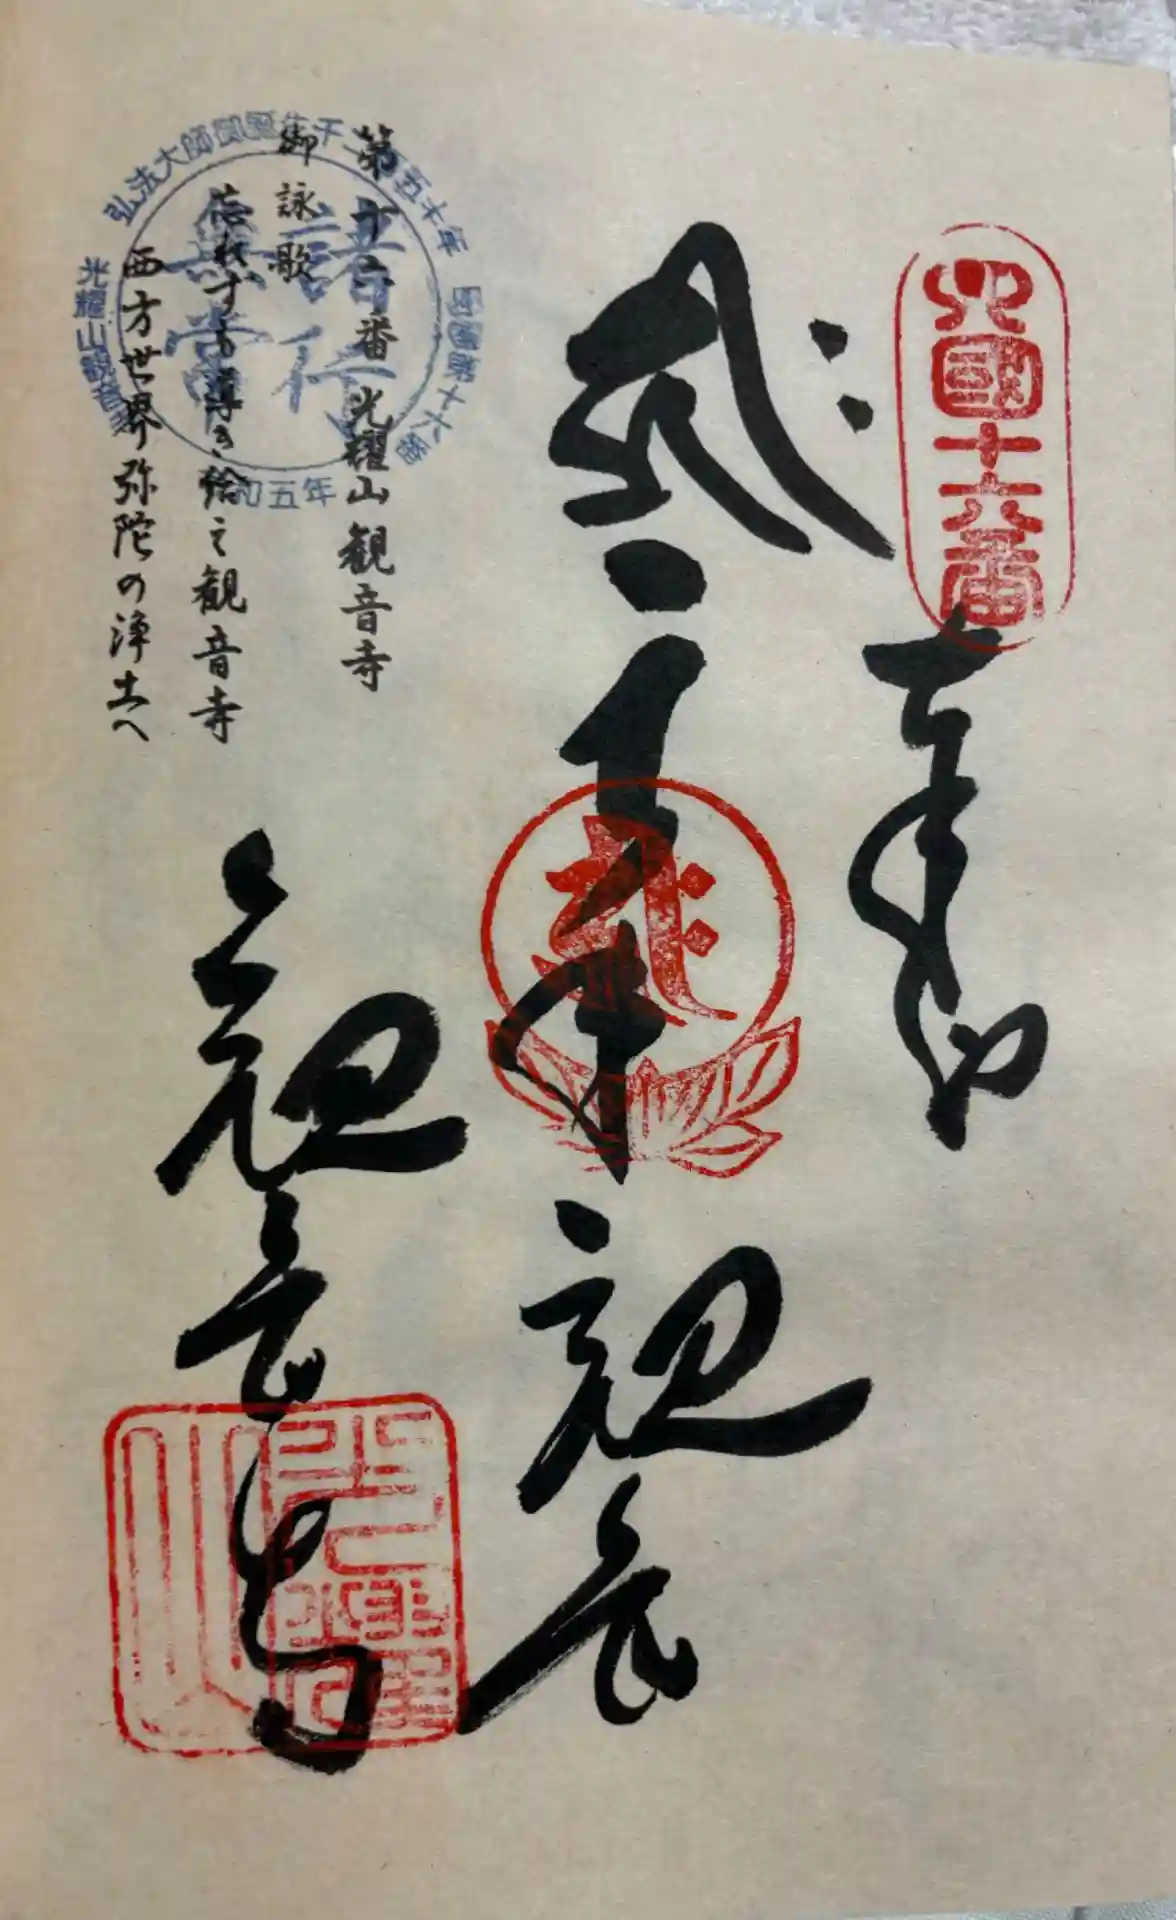 四國十六番
奉納
千手観音
観音寺
第十六番 光耀山観音寺
御詠歌
忘れずも導き給え観音寺
西方世界弥陀の浄土へ
弘法大師御誕生千二百五十年
四國第十六番
光耀山観音寺
諸行無常
令和五年